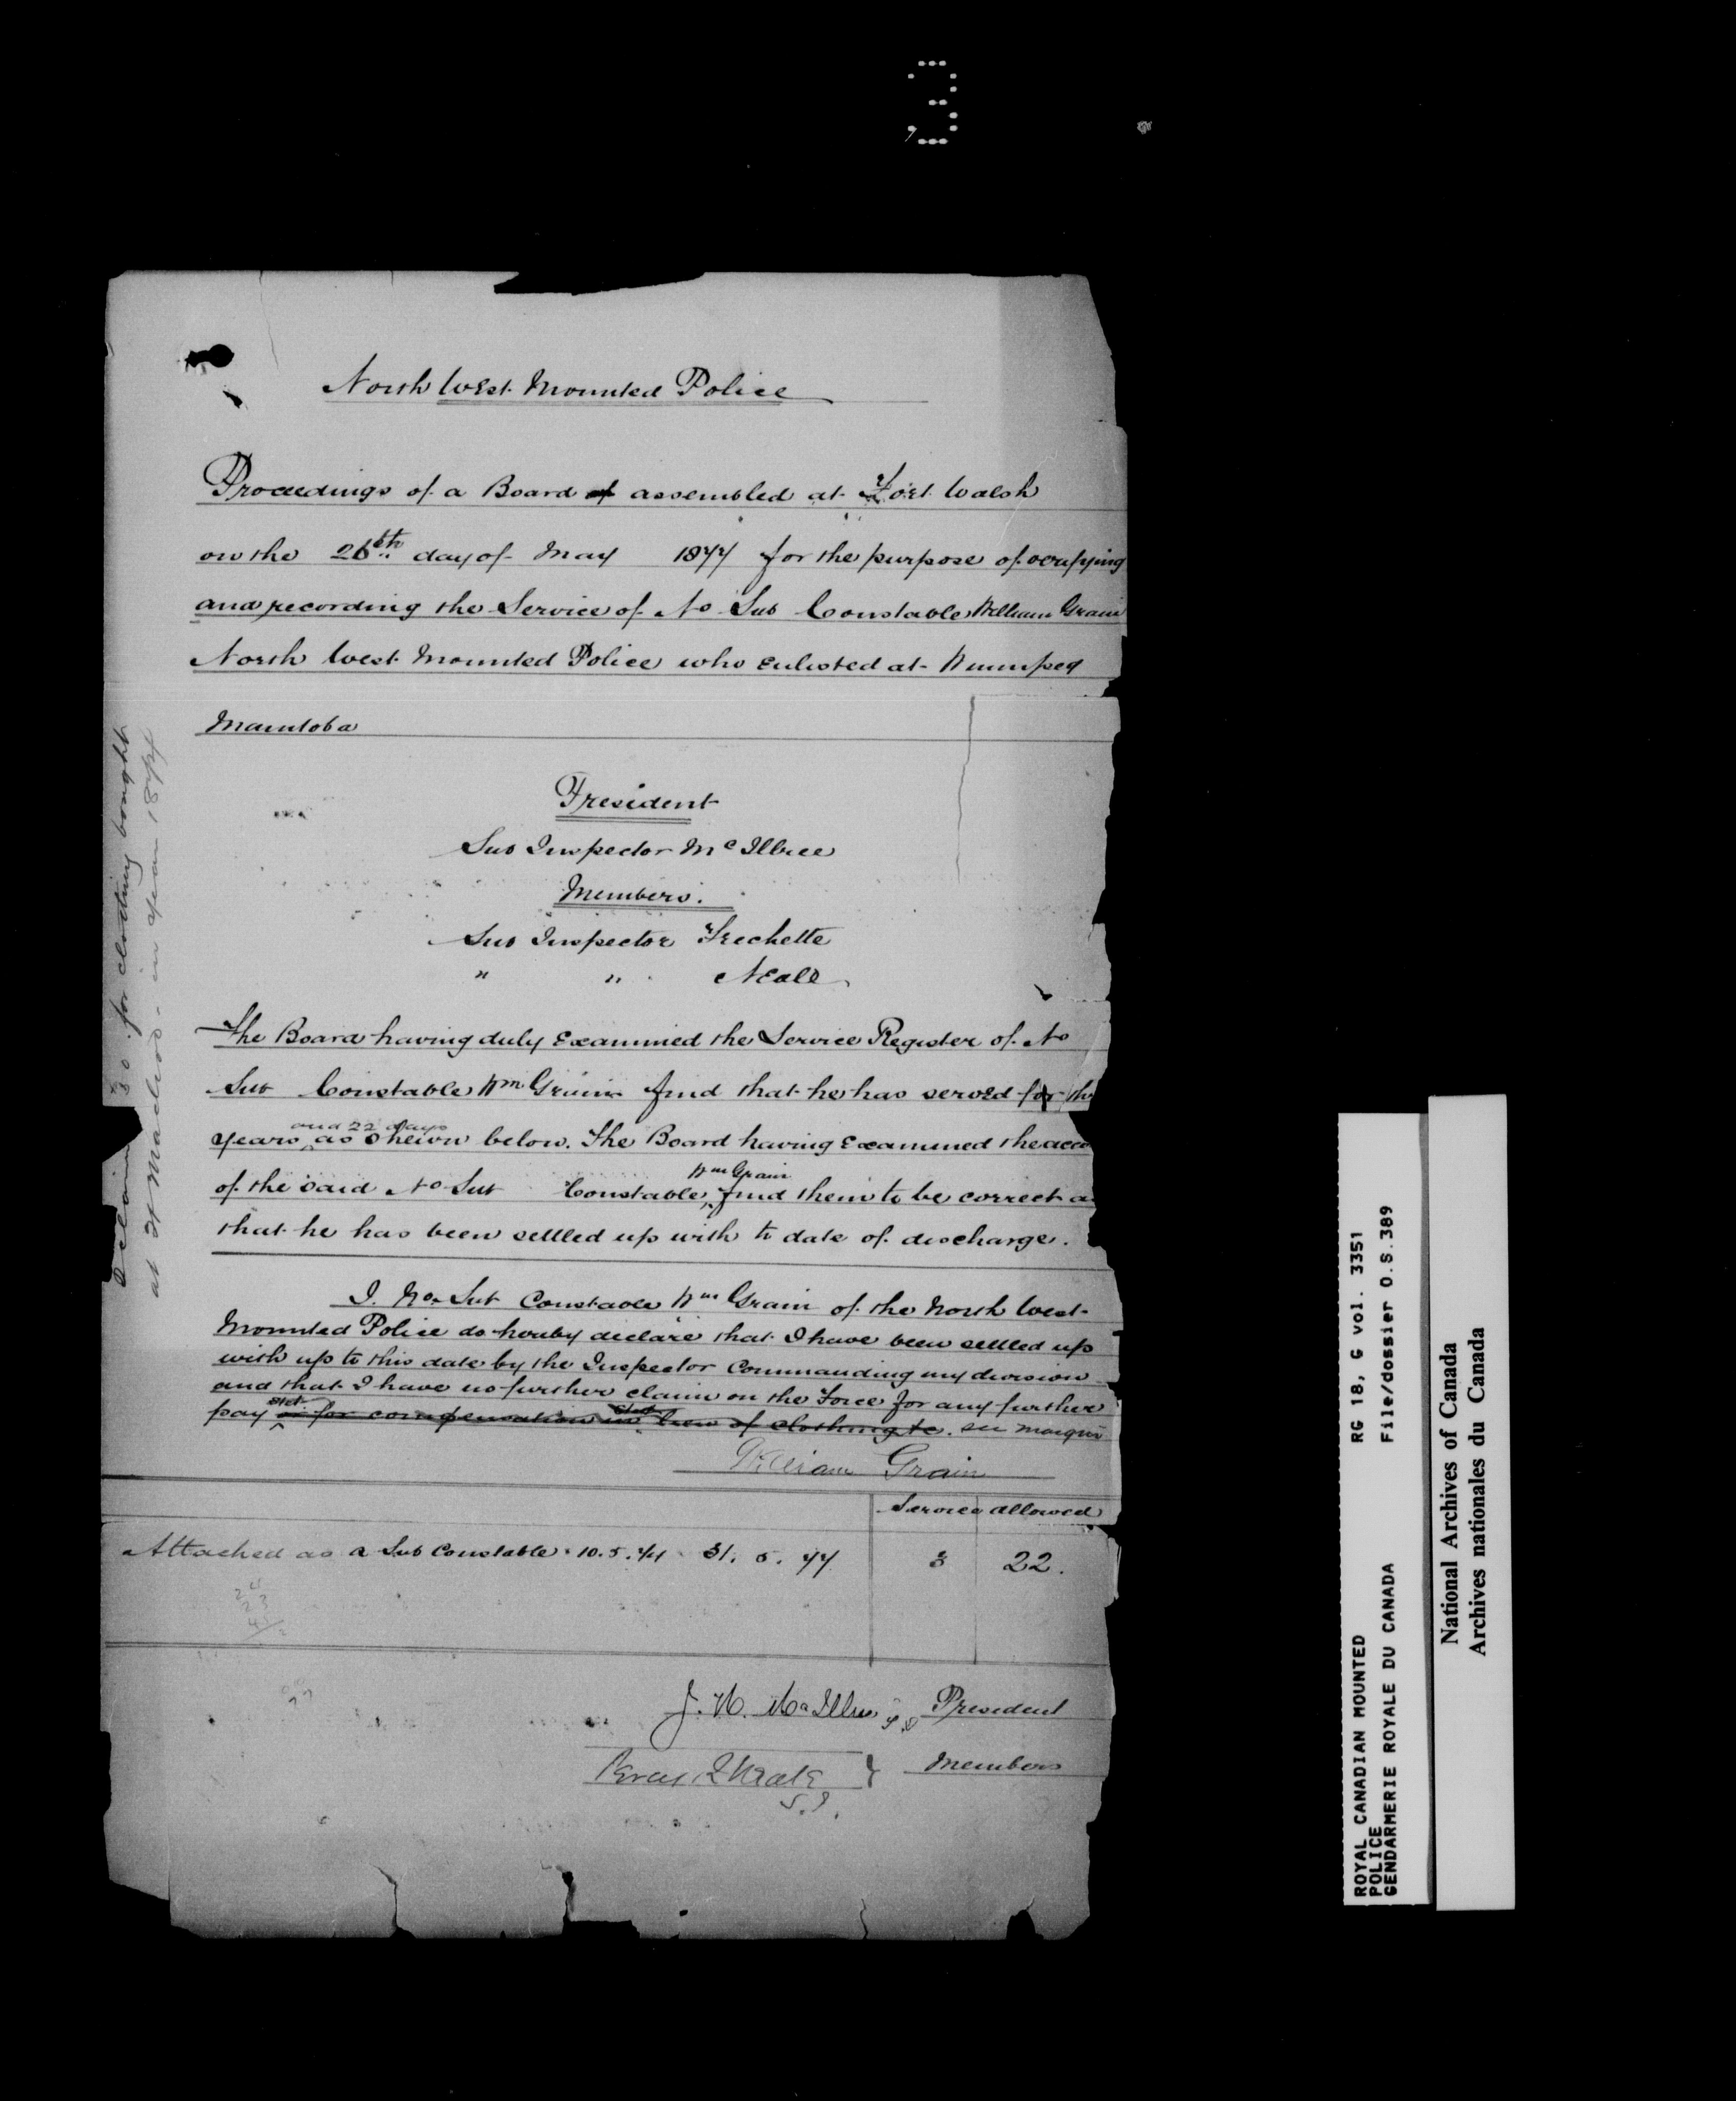 3
North West Mounted Police
Proceedings of a Board of assembled at Fort Walsh
on the 26th day of May 1877 for the purpose of verifying
and recording the Service of No Sub Constable William Grain
North West Mounted Police who Enlisted at Winnipeg
Manitoba
President
Sub Inspector Mc Illree
Members.
Sub Inspector Frechette
" " Neale
The Board having duly Examined the Service Register of No
Sub Constable Wm Grain find that he has served for thr
years and 22 days as shewn below. The Board having Examined the acco
of the said No Sub Constable Wm Grain, find them to be correct a
that he has been settled up with to date of discharge.
I. No. Sub Constable Wm Grain of the North West
Mounted Police do hereby declare that I have been settled up
with up to this date by the Inspector Commanding my division
and that I have no further claim on the Force for any further
pay or for compensation in lieu of clothing &c. see margin
William Grain
Service allowed
Attached as a Sub Constable 10.5.74 31. 5. 77 3 22.
J. H. McIllree S.I. President
Percy R Neale } Members
S.I.
I claim for clothing bought
at Ft Macleod in year 1874
ROYAL CANADIAN MOUNTED
POLICE
GENDARMERIE ROYALE DU CANADA
RG 18, G vol. 3351
File/dossier O.S.389
National Archives of Canada
Archives nationales du Canada